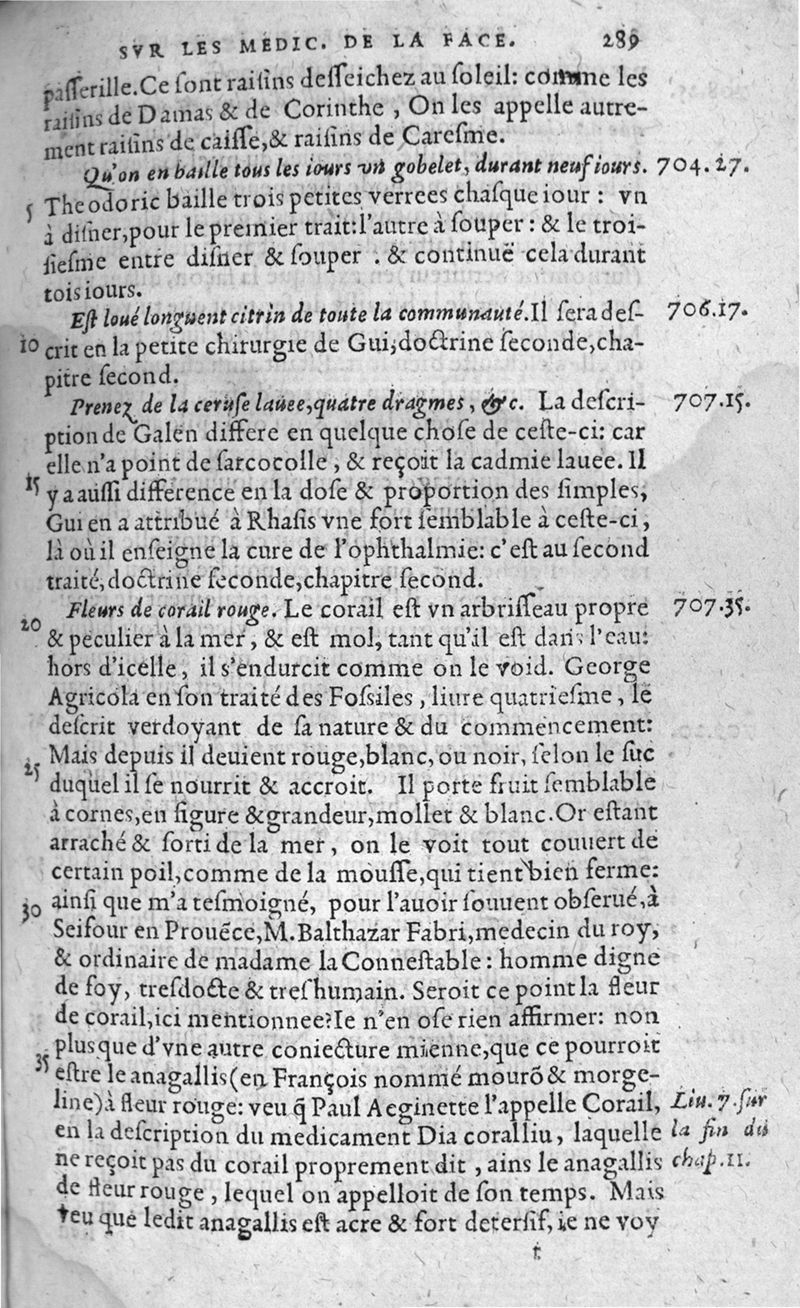 SVR LES MEDIC. DE LA FACE. 289
passerille.Ce sont raisins desseichez au soleil: comme les
raisins de Damas & de Corinthe , On les appelle autre-
ment raisins de caisse,& raisins de Caresme.
Qu'on en baille tous les iours vn gobelet, durant neuf iours. 704.27.
5 Theodoric baille trois petites verrees chasque iour : vn
à disner,pour le premier trait:l'autre à souper : & le troi-
siesme entre disner & souper . & continuë cela durant
tois iours.
Est loué longuent citrin de toute la communauté.Il sera des- 706.17.
10 crit en la petite chirurgie de Gui,doctrine seconde,cha-
pitre second.
Prenez de la ceruse lauee,quatre dragmes, &c. La descri- 707.15.
ption de Galen differe en quelque chose de ceste-ci: car
elle n'a point de sarcocolle , & reçoit la cadmie lauee. Il
15 y a aussi difference en la dose & proportion des simples,
Gui en a attribué à Rhasis vne fort semblable à ceste-ci ,
là où il enseigne la cure de l'ophthalmie: c'est au second
traité,doctrine seconde,chapitre second.
Fleurs de corail rouge. Le corail est vn arbrisseau propre 707.35.
20 & peculier à la mer , & est mol, tant qu'il est dans l'eau:
hors d'icelle , il s'endurcit comme on le void. George
Agricola en son traité des Fossiles , liure quatriesme , le
descrit verdoyant de sa nature & du commencement:
Mais depuis il deuient rouge,blanc, ou noir, selon le suc
25 duquel il se nourrit & accroit. Il porte fruit semblable
à cornes,en figure & grandeur,mollet & blanc.Or estant
arraché & sorti de la mer , on le voit tout couuert de
certain poil,comme de la mousse,qui tient bien ferme:
30 ainsi que m'a tesmoigné, pour l'auoir souuent obserué,à
Seifour en Prouẽce,M.Balthazar Fabri,medecin du roy,
& ordinaire de madame la Connestable : homme digne
de foy, tresdocte & treshumain. Seroit ce point la fleur
de corail,ici mentionnee?Ie n'en ose rien affirmer: non
plus que d'vne autre coniecture mienne,que ce pourroit
35 estre le anagallis(en François nommé mourõ & morge-
line)à fleur rouge: veu q̃ Paul Aeginette l'appelle Corail, Liu. 7.sur
en la description du medicament Dia coralliu, laquelle la fin du
ne reçoit pas du corail proprement dit , ains le anagallis chap.11.
de fleur rouge , lequel on appelloit de son temps. Mais
veu que ledit anagallis est acre & fort detersif, ie ne voy
t